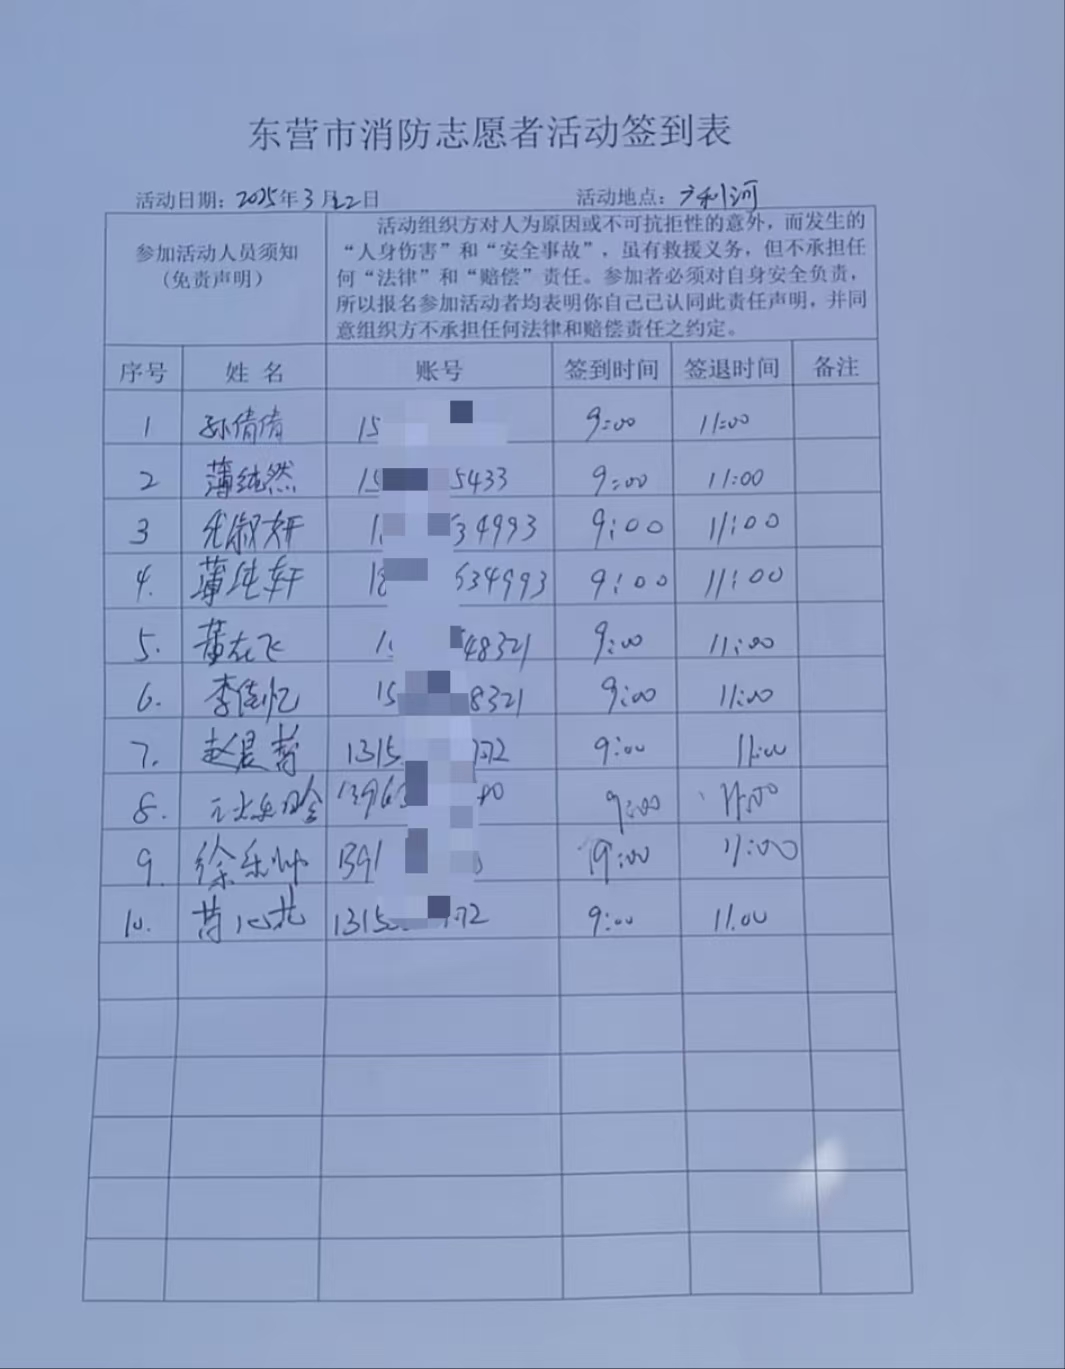 东营市消防志愿者活动签到表
活动日期：2025年3月22日 活动地点：广利河
参加活动人员须知
（免责声明）
活动组织方对人为原因或不可抗拒性的意外，而发生的
“人身伤害”和“安全事故”，虽有救援义务，但不承担任
何“法律”和“赔偿”责任。参加者必须对自身安全负责，
所以报名参加活动者均表明你自己己认同此责任声明，并同
意组织方不承担任何法律和赔偿责任之约定。
序号 姓名 账号 签到时间 签退时间 备注
1 孙倩倩 15 9:00 11:00
2 薄纯然 15 5433 9:00 11:00
3 淑妍 1 34993 9:00 11:00
4. 薄纯轩 18 534993 9:00 11:00
5. 飞 1 48321 9:00 11:00
6. 李佳忆 15 8321 9:00 11:00
7. 赵晨 1315 172 9:00 11:00
8. 1396 40 9:00 11:00
9. 徐乐 1391 9:00 11:00
10. 1315 172 9:00 11:00